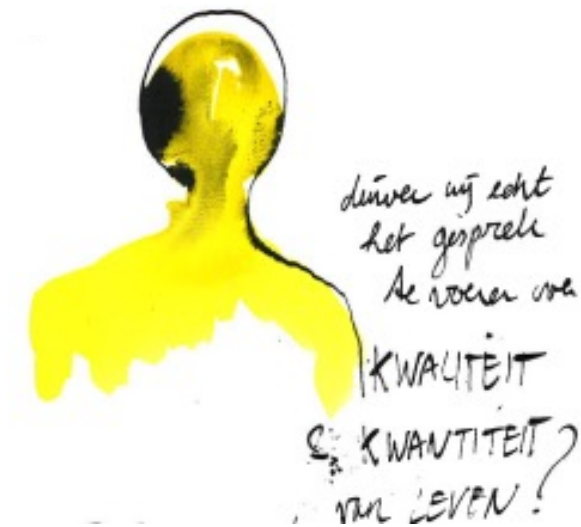 durven wij echt
het gesprek
te voeren over
KWALITEIT
& KWANTITEIT
van LEVEN?